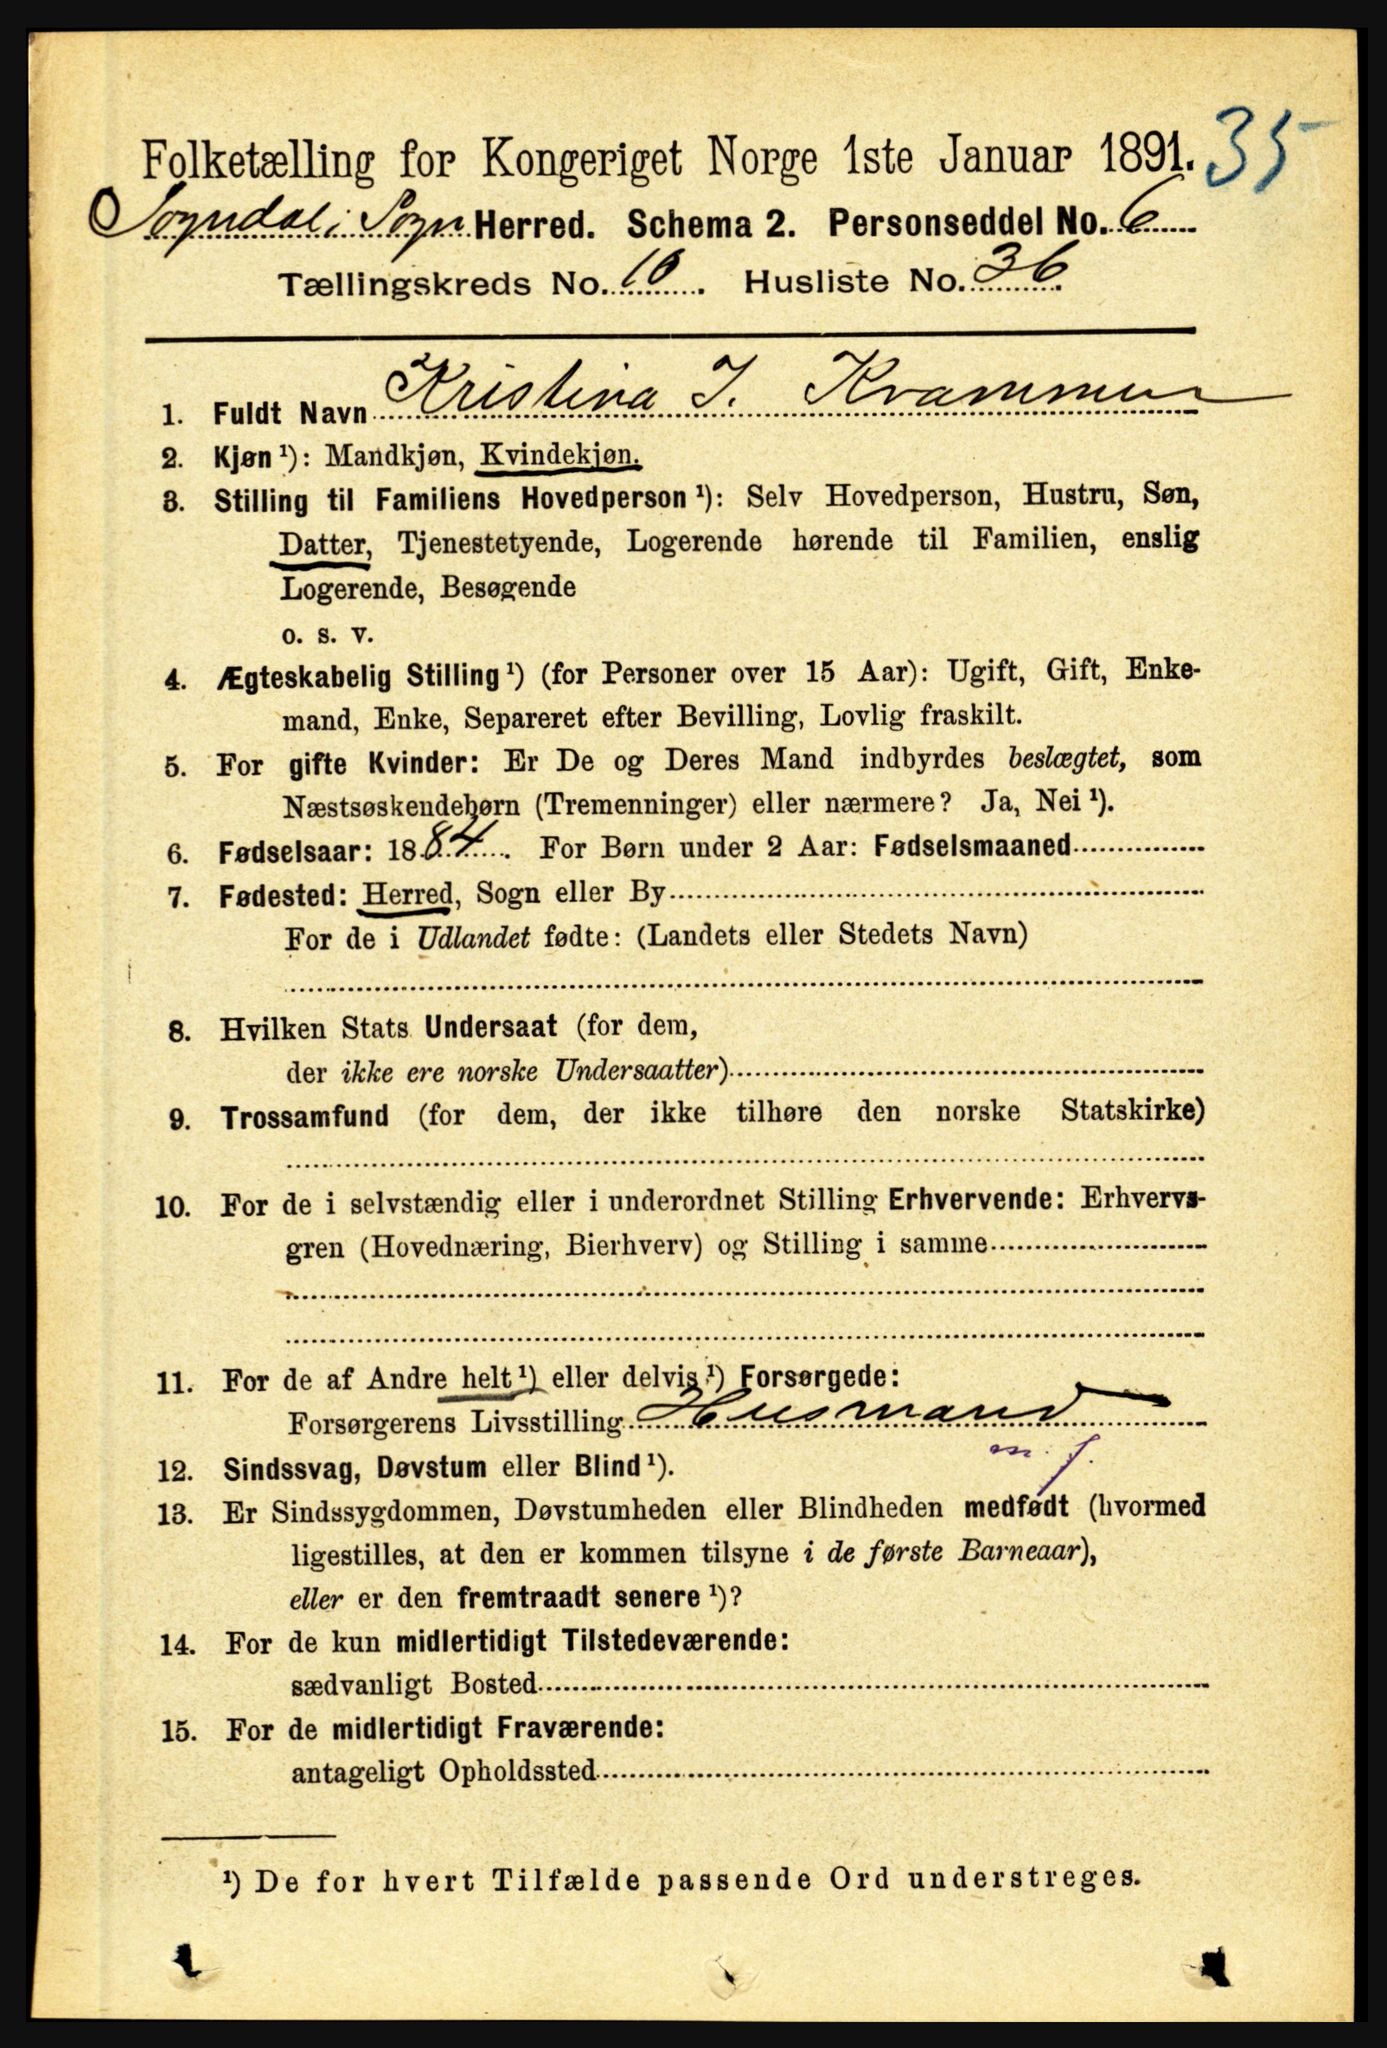 Folketælling for Kongeriget Norge 1ste Januar 1891. 35
Sogndal i Sogn Herred. Schema 2. Personseddel No. 6
Tællingskreds No. 10. Husliste No. 36
1. Fuldt Navn Kristina I. Krammen
2. Kjøn ¹): Mandkjøn, Kvindekjøn.
3. Stilling til Familiens Hovedperson ¹): Selv Hovedperson, Hustru, Søn,
Datter, Tjenestetyende, Logerende hørende til Familien, enslig
Logerende, Besøgende
o. s. v.
4. Ægteskabelig Stilling ¹) (for Personer over 15 Aar): Ugift, Gift, Enke-
mand, Enke, Separeret efter Bevilling, Lovlig fraskilt.
5. For gifte Kvinder: Er De og Deres Mand indbyrdes beslægtet, som
Næstsøskendebørn (Tremenninger) eller nærmere? Ja, Nei ¹).
6. Fødselsaar: 1884. For Børn under 2 Aar: Fødselsmaaned
7. Fødested: Herred, Sogn eller By
For de i Udlandet fødte: (Landets eller Stedets Navn)
8. Hvilken Stats Undersaat (for dem,
der ikke ere norske Undersaatter)
9. Trossamfund (for dem, der ikke tilhøre den norske Statskirke)
10. For de i selvstændig eller i underordnet Stilling Erhvervende: Erhvervs-
gren (Hovednæring, Bierhverv) og Stilling i samme
11. For de af Andre helt ¹) eller delvis ¹) Forsørgede:
Forsørgerens Livsstilling Husmand
m. j.
12. Sindssvag, Døvstum eller Blind ¹).
13. Er Sindssygdommen, Døvstumheden eller Blindheden medfødt (hvormed
ligestilles, at den er kommen tilsyne i de første Barneaar),
eller er den fremtraadt senere ¹)?
14. For de kun midlertidigt Tilstedeværende:
sædvanligt Bosted
15. For de midlertidigt Fraværende:
antageligt Opholdssted
¹) De for hvert Tilfælde passende Ord understreges.